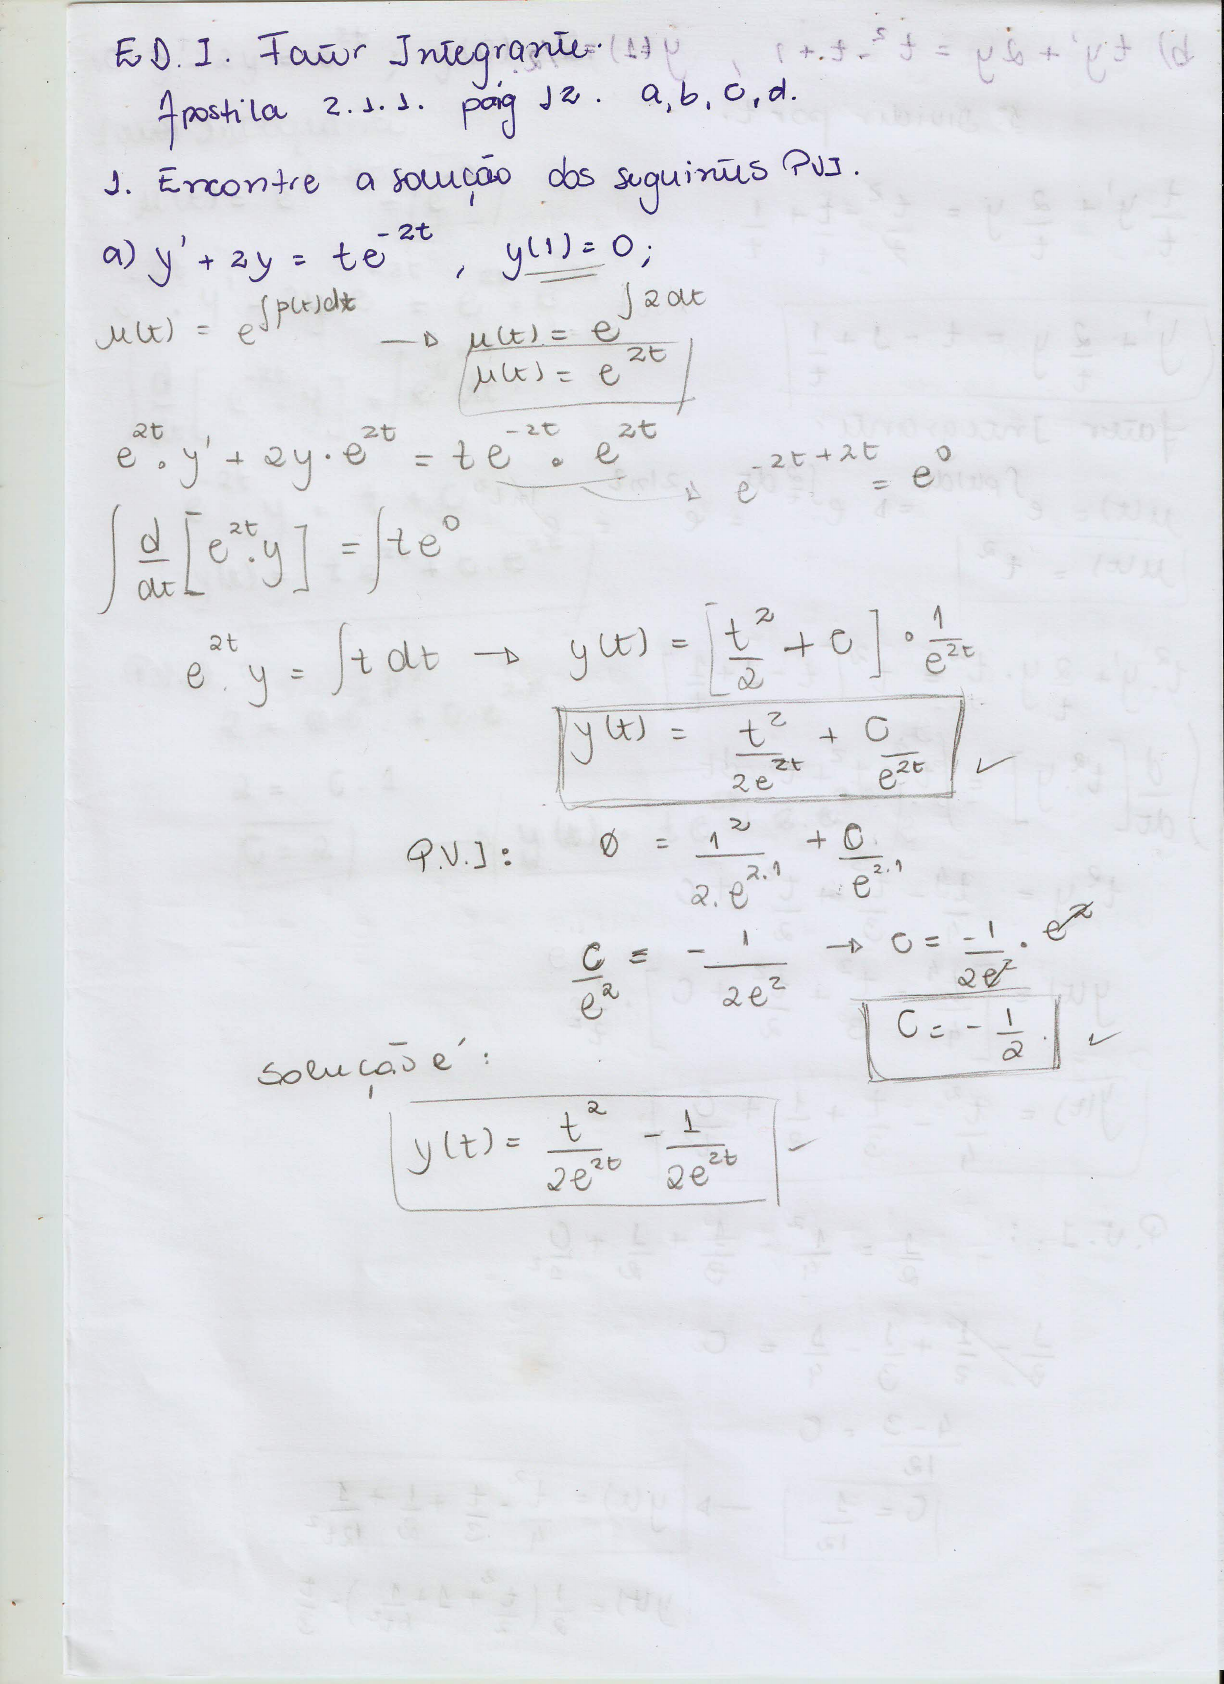 E.D.I. Fator Integrante.
Apostila 2.1.1. pág 12. a, b, c, d.
1. Encontre a solução dos seguintes PVI.
a) y' + 2y = te^{-2t}, y(1) = 0;
μ(t) = e^{∫p(t)dt} → μ(t) = e^{∫2dt}
μ(t) = e^{2t}
e^{2t} · y' + 2y · e^{2t} = te^{-2t} · e^{2t} → e^{-2t+2t} = e^0
∫ d/dt [e^{2t} · y] = ∫ te^0
e^{2t} · y = ∫ t dt → y(t) = [t^2/2 + C] · 1/e^{2t}
y(t) = t^2/2e^{2t} + C/e^{2t} ✓
P.V.I: 0 = 1^2/2.e^{2.1} + C/e^{2.1}
C/e^2 = -1/2e^2 → C = -1/2e^2 · e^2
C = -1/2. ✓
Solução é:
y(t) = t^2/2e^{2t} - 1/2e^{2t} ✓